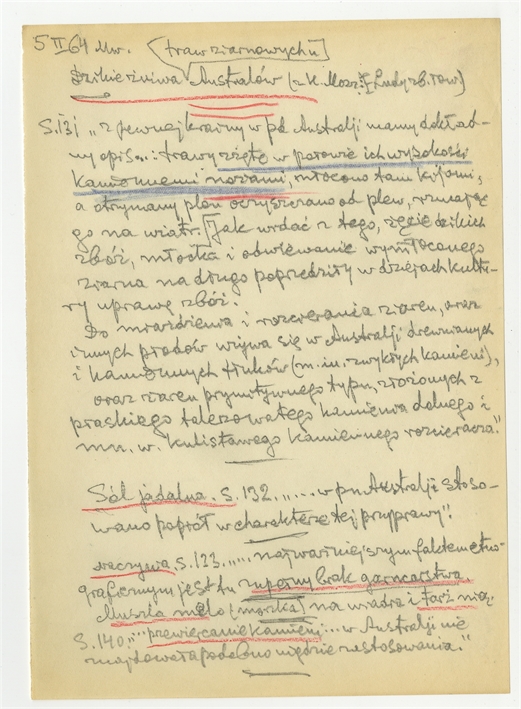 5 II 64 Mw. traw ziarnowych
Dzikie żniwa Australów (z K. Mosz. Ludy zb. row)
S. 131 „z pewnej krainy w pd Australji mamy dokład-
ny opis...: trawy zżęte w połowie ich wysokości
kamiennemi nożami, młócono tam kijami,
a otrzymany plon oczyszczano od plew, rzucając
go na wiatr. Jak widać z tego, zżęcie dzikich
zbóż, młocka i odwiewanie wymłóconego
ziarna na długo poprzedziły w dziejach kultu-
ry uprawę zbóż.
Do miażdżenia i rozcierania ziaren, oraz
innych płodów używa się w Australji drewnianych
i kamiennych tłuków (m.in. zwykłych kamieni),
oraz żaren prymitywnego typu, złożonych z
płaskiego talerzowatego kamienia dolnego i
mn. w. kulistawego kamiennego rozcieracza."
Sól jadalna. S. 132. „... w pn. Australji stoso-
wano popiół w charakterze tej przyprawy".
naczynia S. 133. „... najważniejszym faktem etno-
graficznym jest tu zupełny brak garncarstwa
Muszla melo (morska) na wiadra i też mią.
S. 140. „... przewiercanie kamieni... w Australji nie
znajdowała podobno nigdzie zastosowania."